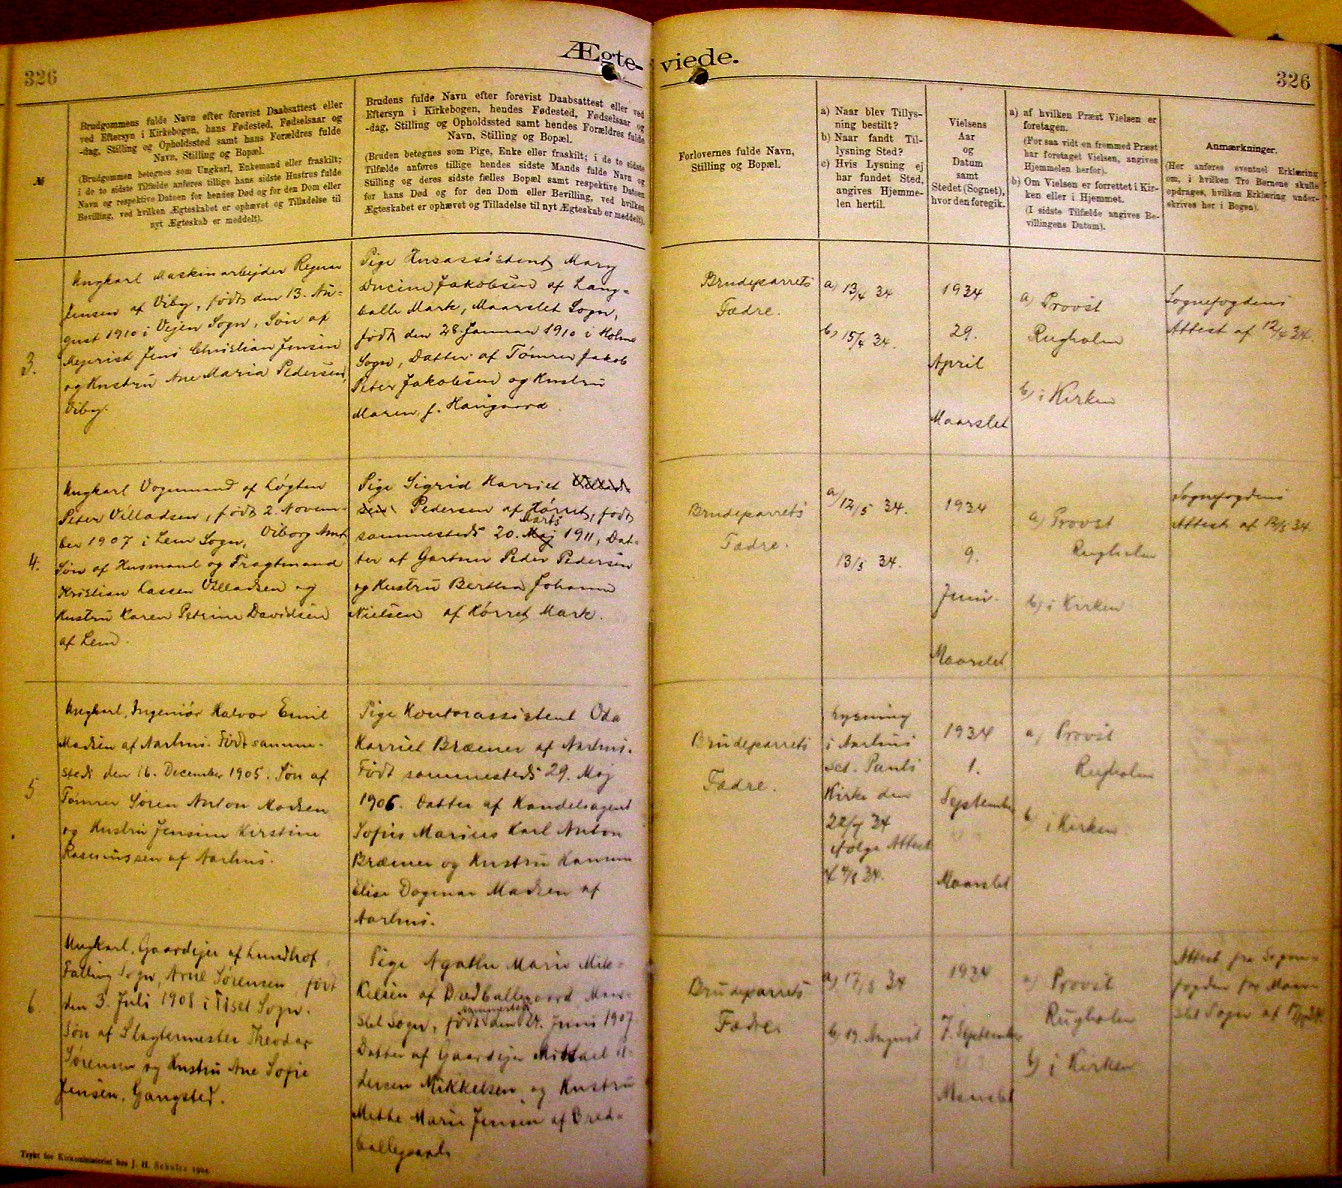 Ægte-
viede.
326
326
№
Brudgommens fulde Navn efter forevist Daabsattest eller
ved Eftersyn i Kirkebogen, hans Fødested, Fødselsaar og
-dag, Stilling og Opholdssted samt hans Forældres fulde
Navn, Stilling og Bopæl.
(Brudgommen betegnes som Ungkarl, Enkemand eller fraskilt;
i de to sidste Tilfælde anføres tillige hans sidste Hustrus fulde
Navn og respektive Datoen for hendes Død og for den Dom eller
Bevilling, ved hvilken Ægteskabet er ophævet og Tilladelse til
nyt Ægteskab er meddelt).
Brudens fulde Navn efter forevist Daabsattest eller ved
Eftersyn i Kirkebogen, hendes Fødested, Fødselsaar og
-dag, Stilling og Opholdssted samt hendes Forældres fulde
Navn, Stilling og Bopæl.
(Bruden betegnes som Pige, Enke eller fraskilt; i de to sidste
Tilfælde anføres tillige hendes sidste Mands fulde Navn og
Stilling og deres sidste fælles Bopæl samt respektive Datoen
for hans Død og for den Dom eller Bevilling, ved hvilken
Ægteskabet er ophævet og Tilladelse til nyt Ægteskab er meddelt).
Forlovernes fulde Navn,
Stilling og Bopæl.
a) Naar blev Tillys-
ning bestilt?
b) Naar fandt Til-
lysning Sted?
c) Hvis Lysning ej
har fundet Sted,
angives Hjemme-
len hertil.
Vielsens
Aar
og
Datum
samt
Stedet (Sognet),
hvor den foregik.
a) af hvilken Præst Vielsen er
foretagen.
(For saa vidt en fremmed Præst
har foretaget Vielsen, angives
Hjemmelen herfor).
b) Om Vielsen er forrettet i Kir-
ken eller i Hjemmet.
(I sidste Tilfælde angives Be-
villingens Datum).
Anmærkninger.
(Her anføres eventuel Erklæring
om, i hvilken Tro Børnene skulle
opdrages, hvilken Erklæring under-
skrives her i Bogen).
3.
Ungkarl Maskinarbejder Rejnar
Jensen af Viby, født den 13. Au-
gust 1910 i Vejen Sogn, Søn af
Mejerist Jens Christian Jensen
og Hustru Ane Maria Pedersen,
Viby.
Pige Husassistent Mary
Jakobsen af Lang-
balle Mark, Maarslet Sogn,
født den 28 Januar 1910 i Holme
Sogn, Datter af Tømrer Jakob
Peter Jakobsen og Hustru
Maren, f. Haugaard.
Brudeparrets
Fædre.
a) 13/4 34
b) 15/4 34.
1934
29.
April
Maarslet
a) Provst
Rugholm
b) i Kirken
Sognefogdens
Attest af 12/4 34.
4.
Ungkarl Vognmand af Løgten
Peter Villadsen, født 2. Novem-
ber 1907 i Lem Sogn, Viborg Amt
Søn af Husmand og Fragtmand
Kristian Lassen Villadsen og
Hustru Karen Petrine Davidsen
af Lem.
Pige Sigrid Harriet
Pedersen af Hørret, født
Marts
sammesteds 20. Maj 1911, Dat-
ter af Gartner Peder Pedersen
og Hustru Bertha Johanne
Nielsen af Hørret Mark.
Brudeparrets
Fædre.
a) 12/5 34.
13/5 34.
1934
9.
Juni.
Maarslet
a) Provst
Rugholm
b) i Kirken
Sognefogdens
Attest af 12/5 34.
5
Ungkarl, Ingeniør Halvor Emil
Madsen af Aarhus. Født samme-
steds den 16. December 1905. Søn af
Tømrer Søren Anton Madsen
og Hustru Jensine Kirstine
Rasmussen af Aarhus.
Pige Kontorassistent Oda
Harriet Bræmer af Aarhus.
Født sammesteds 29. Maj
1906. Datter af Handelsagent
Sofus Marius Karl Anton
Bræmer og Hustru Hanne
Elise Dagmar Madsen af
Aarhus.
Brudeparrets
Fædre.
Lysning
i Aarhus
Sct. Pauls
Kirke den
22/7 34
ifølge Attest
1934
1.
September
Maarslet
a) Provst
Rugholm
b) i Kirken.
6.
Ungkarl, Gaardejer af Lundhof,
Falling Sogn, Arne Sørensen, født
den 3. Juli 1908 i Tiset Sogn.
Søn af Slagtermester Theodor
Sørensen og Hustru Ane Sofie
Jensen, Gangsted.
Pige Agathe Marie Mik-
kelsen af Bredballegaard, Maar-
sammesteds
slet Sogn, født den 24. Juni 1907
Datter af Gaardejer Mikkel
Mikkelsen og Hustru
Mette Marie Jensen af Bred-
ballegaard.
Brudeparrets
Fædre
a) 17/8 34
b) 19. August
1934
7. September
Maarslet
a) Provst
Rugholm
b) i Kirken
Attest fra Sogne-
fogden for Maar-
slet Sogn af
Trykt for Kirkeministeriet hos J. H. Schultz 1904.